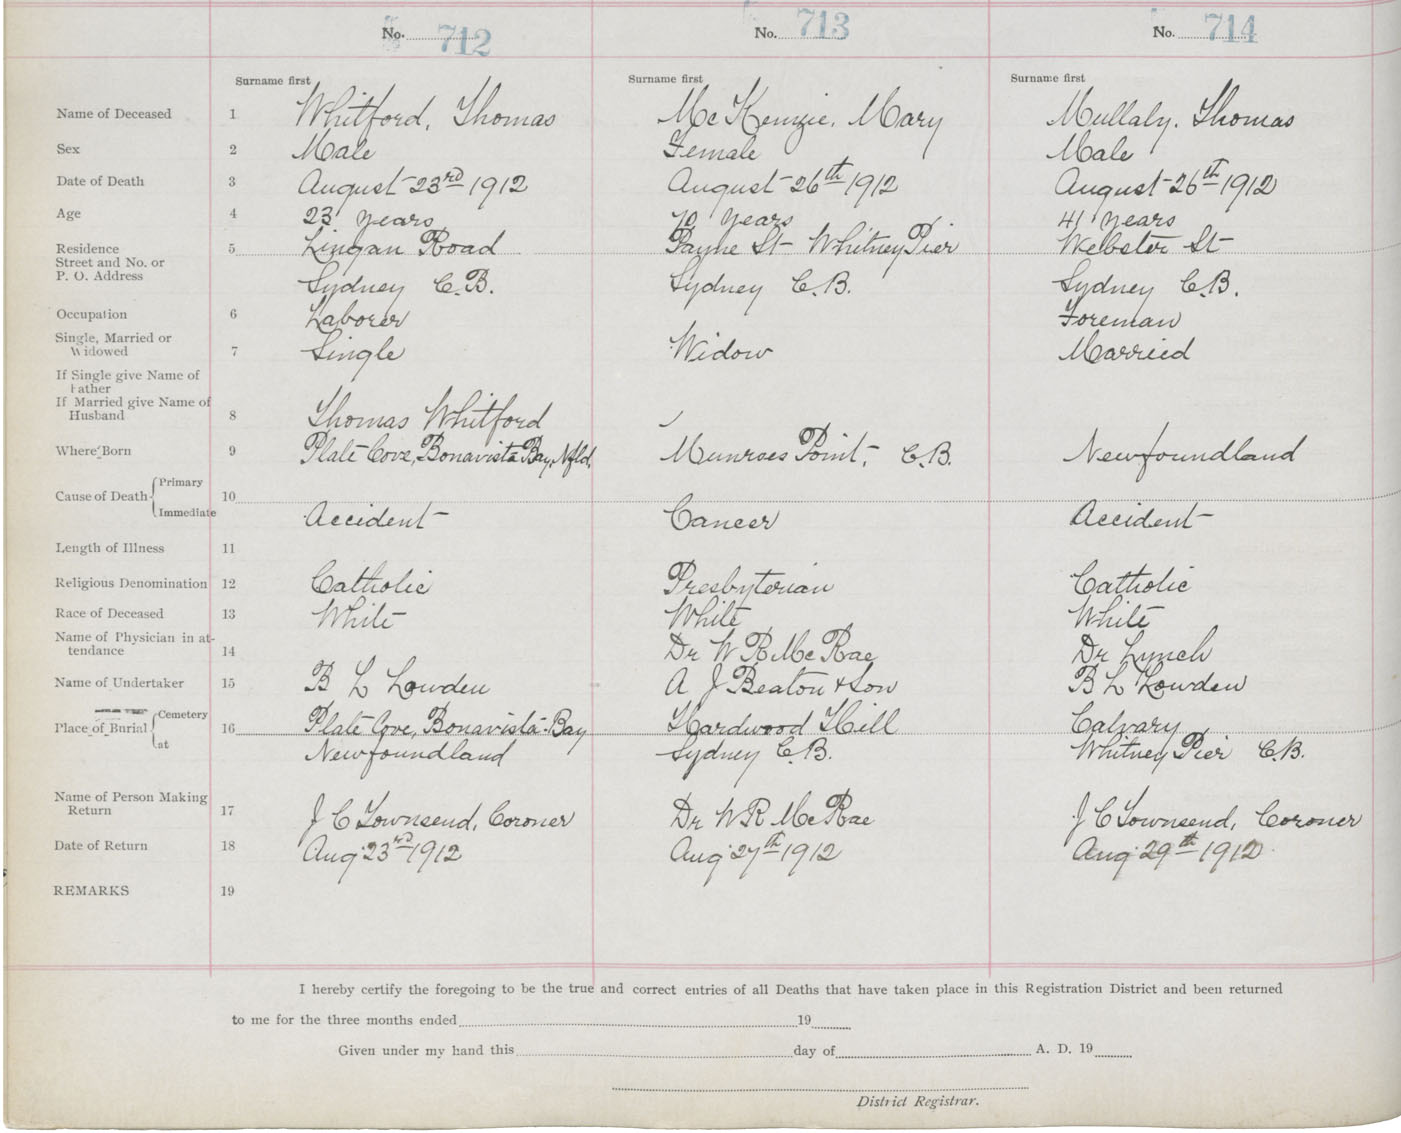 No. 712 No. 713 No. 714
Surname first Surname first Surname first
Name of Deceased 1 Whitford, Thomas McKenzie, Mary Mullaly, Thomas
Sex 2 Male Female Male
Date of Death 3 August 23rd 1912 August 26th 1912 August 26th 1912
Age 4 23 years 70 years 41 years
Residence 5 Lingan Road Payne St Whitney Pier Webster St
Street and No. or
P. O. Address Sydney C.B. Sydney C.B. Sydney C.B.
Occupation 6 Laborer Foreman
Single, Married or
Widowed 7 Single Widow Married
If Single give Name of
Father
If Married give Name of
Husband 8 Thomas Whitford
Where Born 9 Plate Cove, Bonavista Bay, Nfld. Munroes Point, C.B. Newfoundland
Cause of Death Primary 10
Immediate Accident Cancer Accident
Length of Illness 11
Religious Denomination 12 Catholic Presbyterian Catholic
Race of Deceased 13 White White White
Name of Physician in at-
tendance 14 Dr W R McRae Dr Lynch
Name of Undertaker 15 B L Lowden A J Beaton & Son B L Lowden
Place of Burial Cemetery 16 Plate Cove, Bonavista Bay Hardwood Hill Calvary
at Newfoundland Sydney C.B. Whitney Pier C.B.
Name of Person Making
Return 17 J C Townsend, Coroner Dr W R McRae J C Townsend, Coroner
Date of Return 18 Aug 23rd 1912 Aug 27th 1912 Aug 29th 1912
REMARKS 19
I hereby certify the foregoing to be the true and correct entries of all Deaths that have taken place in this Registration District and been returned
to me for the three months ended 19
Given under my hand this day of A. D. 19
District Registrar.